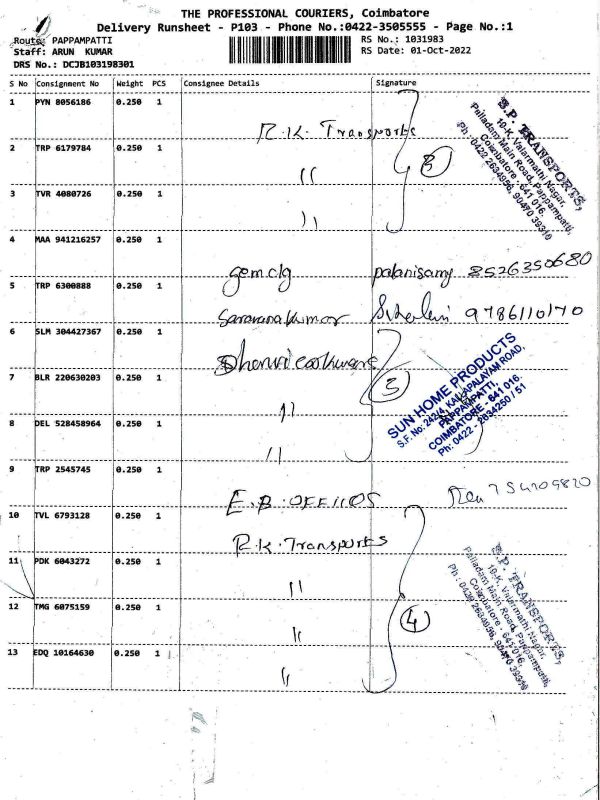 THE PROFESSIONAL COURIERS, Coimbatore
Delivery Runsheet - P103 - Phone No.:0422-3505555 - Page No.:1
Route: PAPPAMPATTI
RS No.: 1031983
Staff: ARUN KUMAR
RS Date: 01-Oct-2022
DRS No.: DCJB103198301
S No Consignment No Weight PCS Consignee Details Signature
1 PYN 8056186 0.250 1 R.K. Transports
2 TRP 6179784 0.250 1 "
3 TVR 4080726 0.250 1 "
3
S.P. TRANSPORTS,
10-K, Valarmathi Nagar,
Palladam Main Road, Pappampatti,
Coimbatore - 641 016.
Ph : 0422 2634956, 90470 39310
4 MAA 941216257 0.250 1 palanisamy 8526350680
5 TRP 6300888 0.250 1 Saravanakumar 9786110170
6 SLM 304427367 0.250 1
7 BLR 220630203 0.250 1 "
8 DEL 528458964 0.250 1 "
3
SUN HOME PRODUCTS
S.F. No: 242/4, KALLAPALAYAM ROAD,
PAPPAMPATTI,
COIMBATORE - 641 016.
Ph: 0422 - 2634250 / 51
9 TRP 2545745 0.250 1 E.B. OFFIIOS
10 TVL 6793128 0.250 1 R.K. Transports
11 PDK 6043272 0.250 1 "
12 TMG 6075159 0.250 1 "
13 EDQ 10164630 0.250 1 "
4
S.P. TRANSPORTS,
10-K, Valarmathi Nagar,
Palladam Main Road, Pappampatti,
Coimbatore - 641 016.
Ph : 0422 2634956, 90470 39310